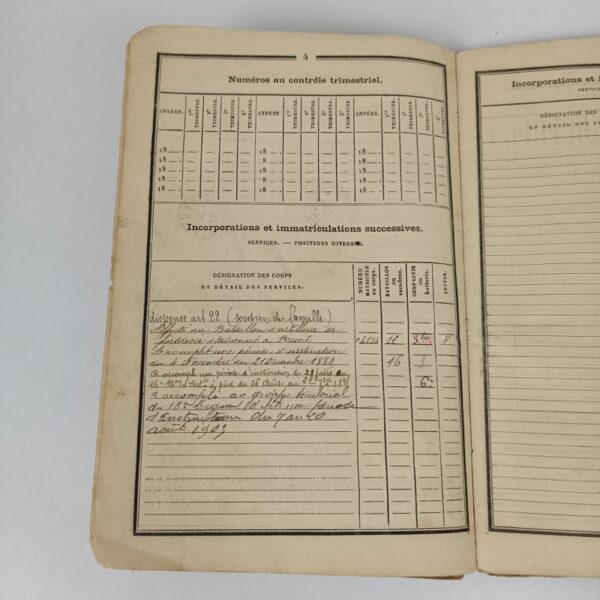 4
Numéros au contrôle trimestriel.
ANNÉES. 1er TRIMESTRE. 2e TRIMESTRE. 3e TRIMESTRE. 4e TRIMESTRE. ANNÉES. 1er TRIMESTRE. 2e TRIMESTRE. 3e TRIMESTRE. 4e TRIMESTRE. ANNÉES. 1er TRIMESTRE. 2e TRIMESTRE. 3e TRIMESTRE. 4e TRIMESTRE.
18 18 18
18 18 18
18 18 18
18 18 18
18 18 18
Incorporations et immatriculations successives.
SERVICES. — POSITIONS DIVERSES.
DÉSIGNATION DES CORPS
ET DÉTAIL DES SERVICES.
NUMÉRO MATRICULE au corps.
BATAILLON ou escadron.
COMPAGNIE ou batterie.
LETTRE.
dispensé art 22 (soutien de famille)
Bataillon d'artillerie de
forteresse stationné à Rueil 16
a accompli une période d'instruction
du 4 Novembre au 31 Décembre 1884 16
a accompli une période d'instruction de
16e à pied du 26 Août au 6e
a accompli au groupe territorial
du 18e une période
d'Instruction du 7 au 20
août 1903
Incorporations et
SERVICES
DÉSIGNATION DES
ET DÉTAIL DES SERV